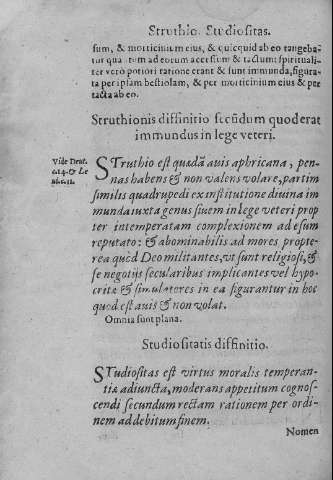 Struthio. Studiositas.
sum, & morticinium eius, & quicquid ab eo tangebā
tur quātum ad eorum accessum & tactum spirituali-
ter verò potiori ratione erant & sunt immunda, figura
ta per ipsam bestiolam, & per morticinium eius & per
tacta ab eo.
Struthionis diffinitio secūdum quod erat
immundus in lege veteri.
Vide Deut.
c.14. & Le
STruthio est quædā auis aphricana, pen-
nas habens & non valens volare, partim
similis quadrupedi ex institutione diuina im
munda iuxta genus suum in lege veteri prop
ter intemperatam complexionem ad esum
reputato: & abominabilis ad mores propte-
rea quòd Deo militantes, vt sunt religiosi, &
se negotijs secularibus implicantes vel hypo-
critæ & simulatores in ea figurantur in hoc
quod est auis & non volat.
Omnia sunt plana.
Studiositatis diffinitio.
STudiositas est virtus moralis temperan-
tiæ adiuncta, moderans appetitum cognos-
cendi secundum rectam rationem per ordi-
nem ad debitum finem.
Nomen